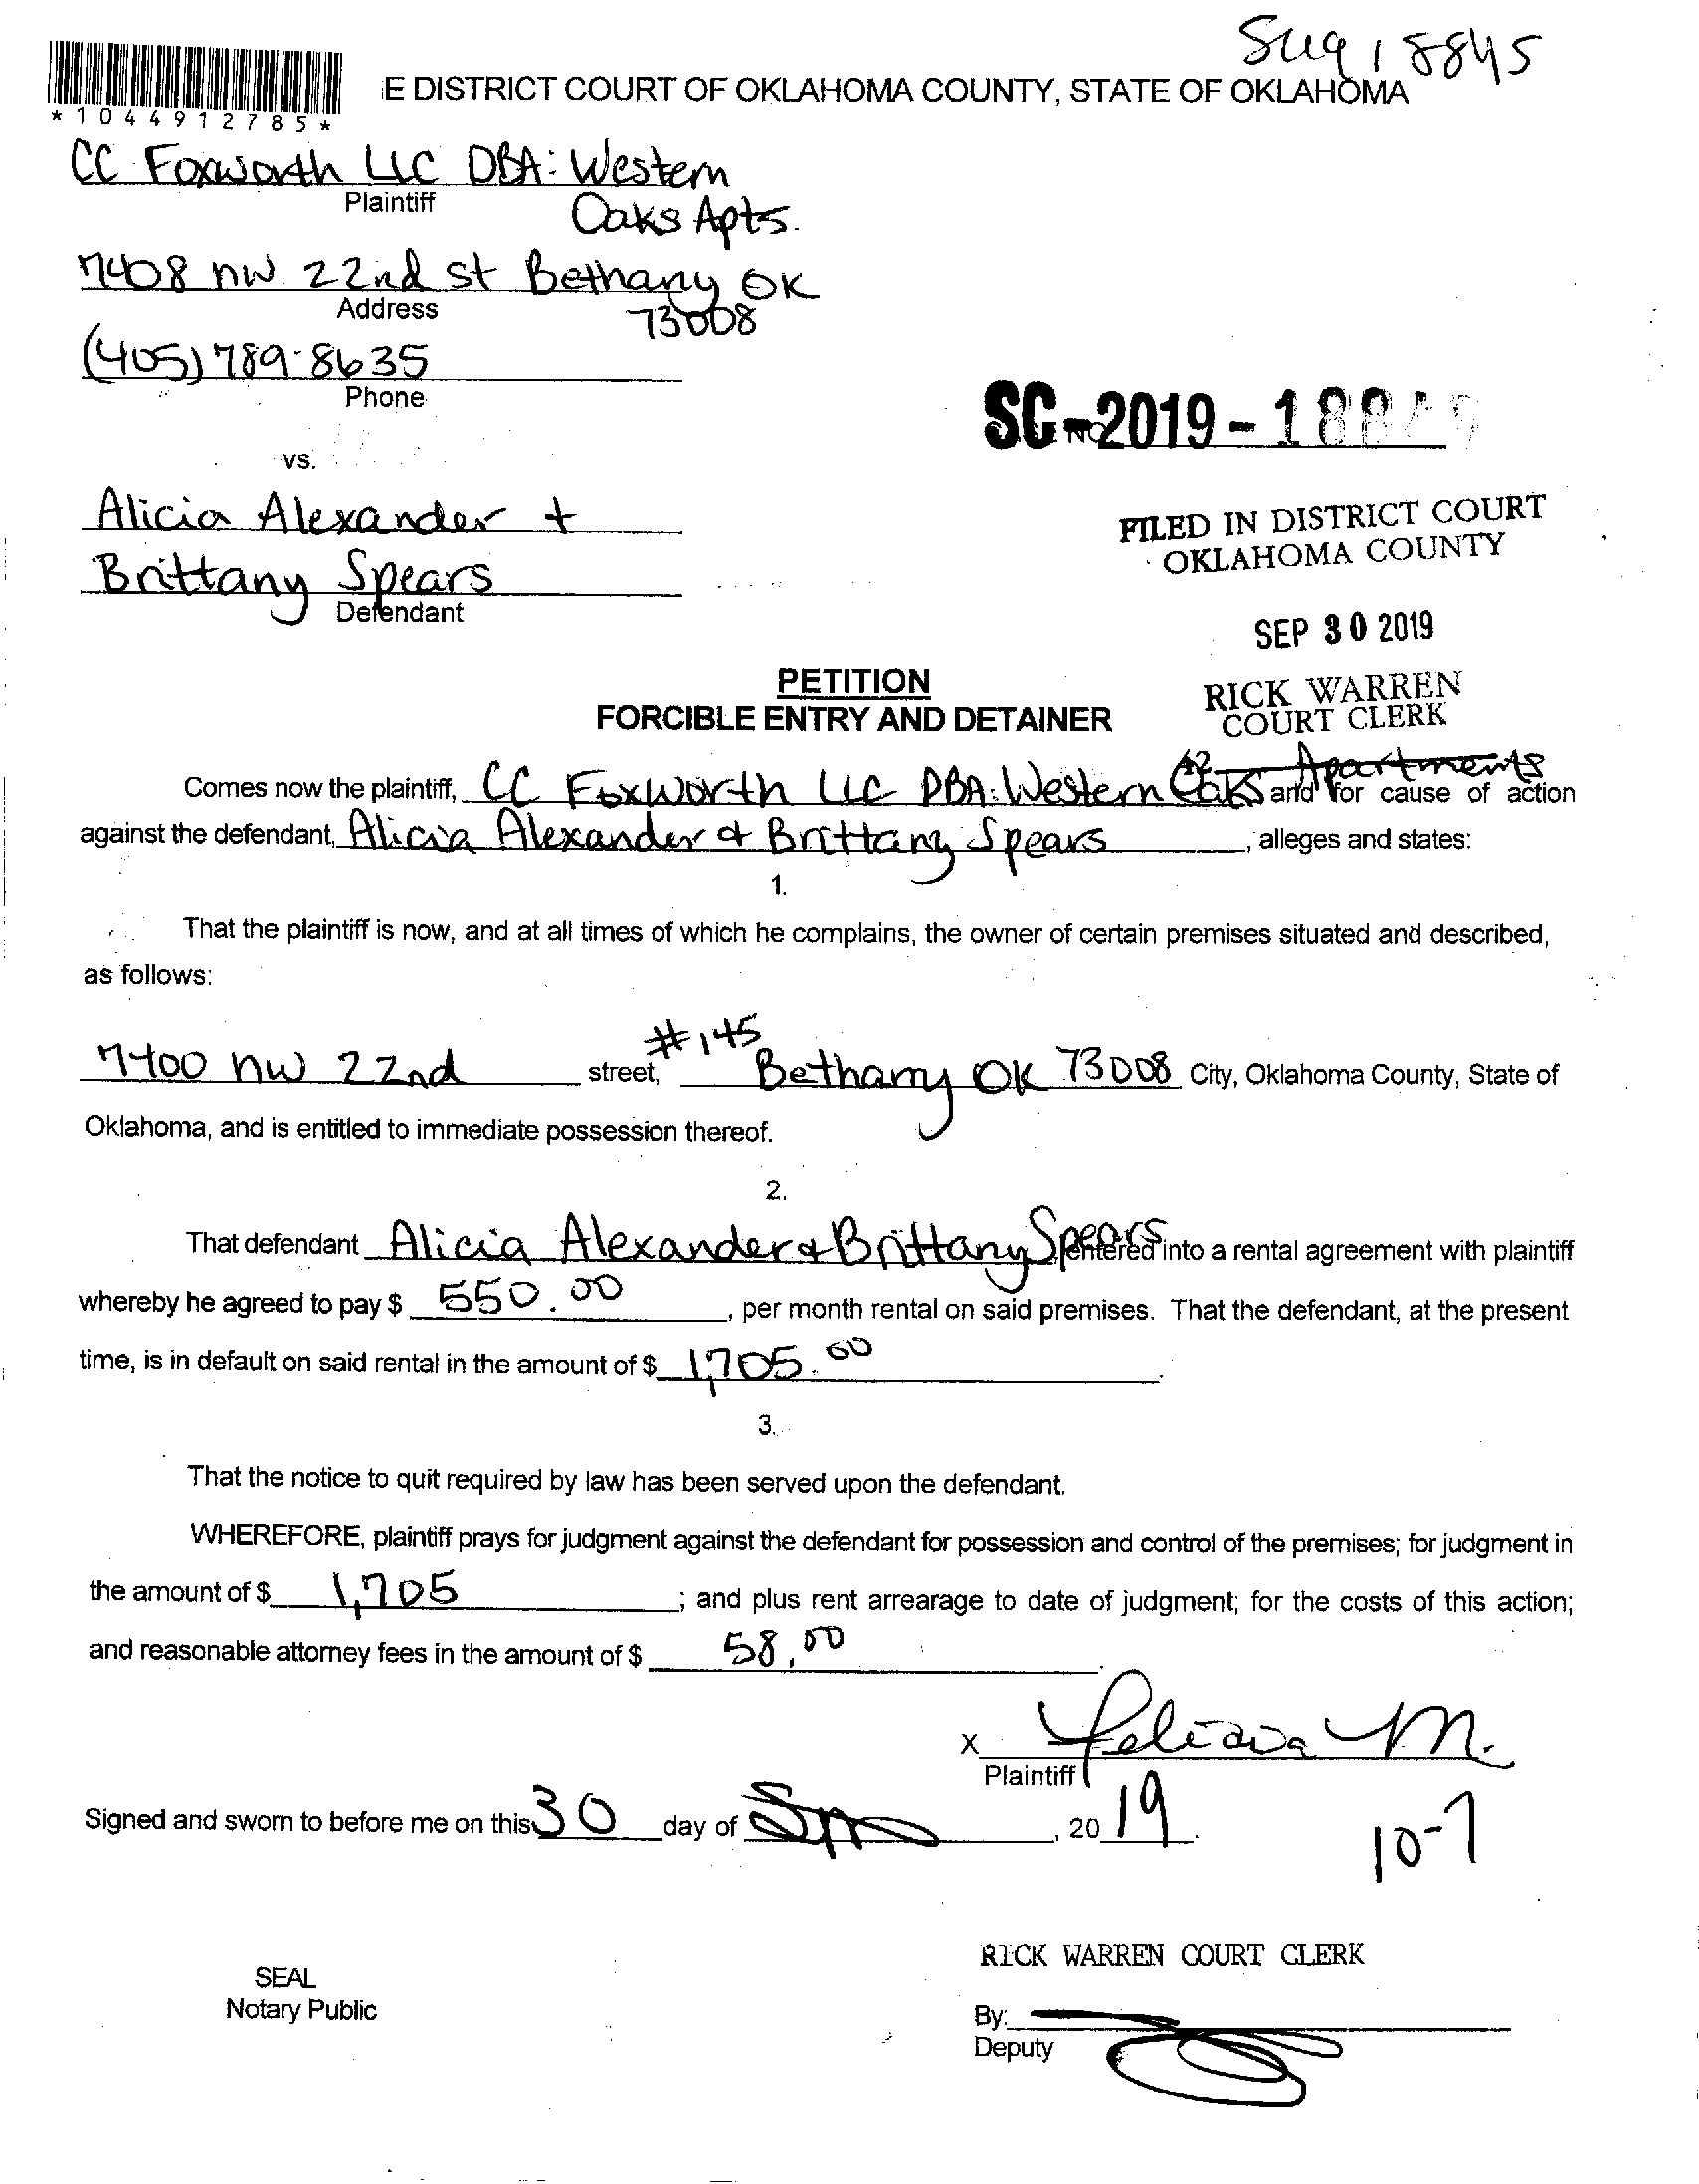 18845
*1044912785*
E DISTRICT COURT OF OKLAHOMA COUNTY, STATE OF OKLAHOMA
CC Foxworth LLC DBA: Western
Plaintiff
Oaks Apts.
7408 nw 22nd st Bethany OK
Address
73008
(405) 789-8635
Phone
SC-2019-
vs.
Alicia Alexander +
Brittany Spears
Defendant
FILED IN DISTRICT COURT
OKLAHOMA COUNTY
SEP 30 2019
RICK WARREN
COURT CLERK
PETITION
FORCIBLE ENTRY AND DETAINER
Comes now the plaintiff, CC Foxworth LLC DBA: Western Oaks Apartments and for cause of action
against the defendant, Alicia Alexander & Brittany Spears, alleges and states:
1.
That the plaintiff is now, and at all times of which he complains, the owner of certain premises situated and described,
as follows:
7400 nw 22nd street, #145 Bethany OK 73008 City, Oklahoma County, State of
Oklahoma, and is entitled to immediate possession thereof.
2.
That defendant Alicia Alexander & Brittany Spears entered into a rental agreement with plaintiff
whereby he agreed to pay $ 550.00, per month rental on said premises. That the defendant, at the present
time, is in default on said rental in the amount of $ 1,705.00.
3.
That the notice to quit required by law has been served upon the defendant.
WHEREFORE, plaintiff prays for judgment against the defendant for possession and control of the premises; for judgment in
the amount of $ 1,705; and plus rent arrearage to date of judgment; for the costs of this action;
and reasonable attorney fees in the amount of $ 58.00.
X Felicia M.
Plaintiff
Signed and sworn to before me on this 30 day of, 2019.
10-7
SEAL
Notary Public
RICK WARREN COURT CLERK
By:
Deputy